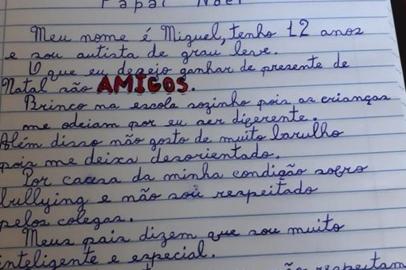 Papai Noel
Meu nome é Miguel, tenho 12 anos
e sou autista de grau leve.
O que eu desejo ganhar de presente de
Natal são AMIGOS.
Brinco na escola sozinho pois as crianças
me odeiam por eu ser diferente.
Além disso não gosto de muito barulho
pois me deixa desorientado.
Por causa da minha condição sofro
bullying e não sou respeitado
pelos colegas.
Meus pais dizem que sou muito
inteligente e especial.
respeitam